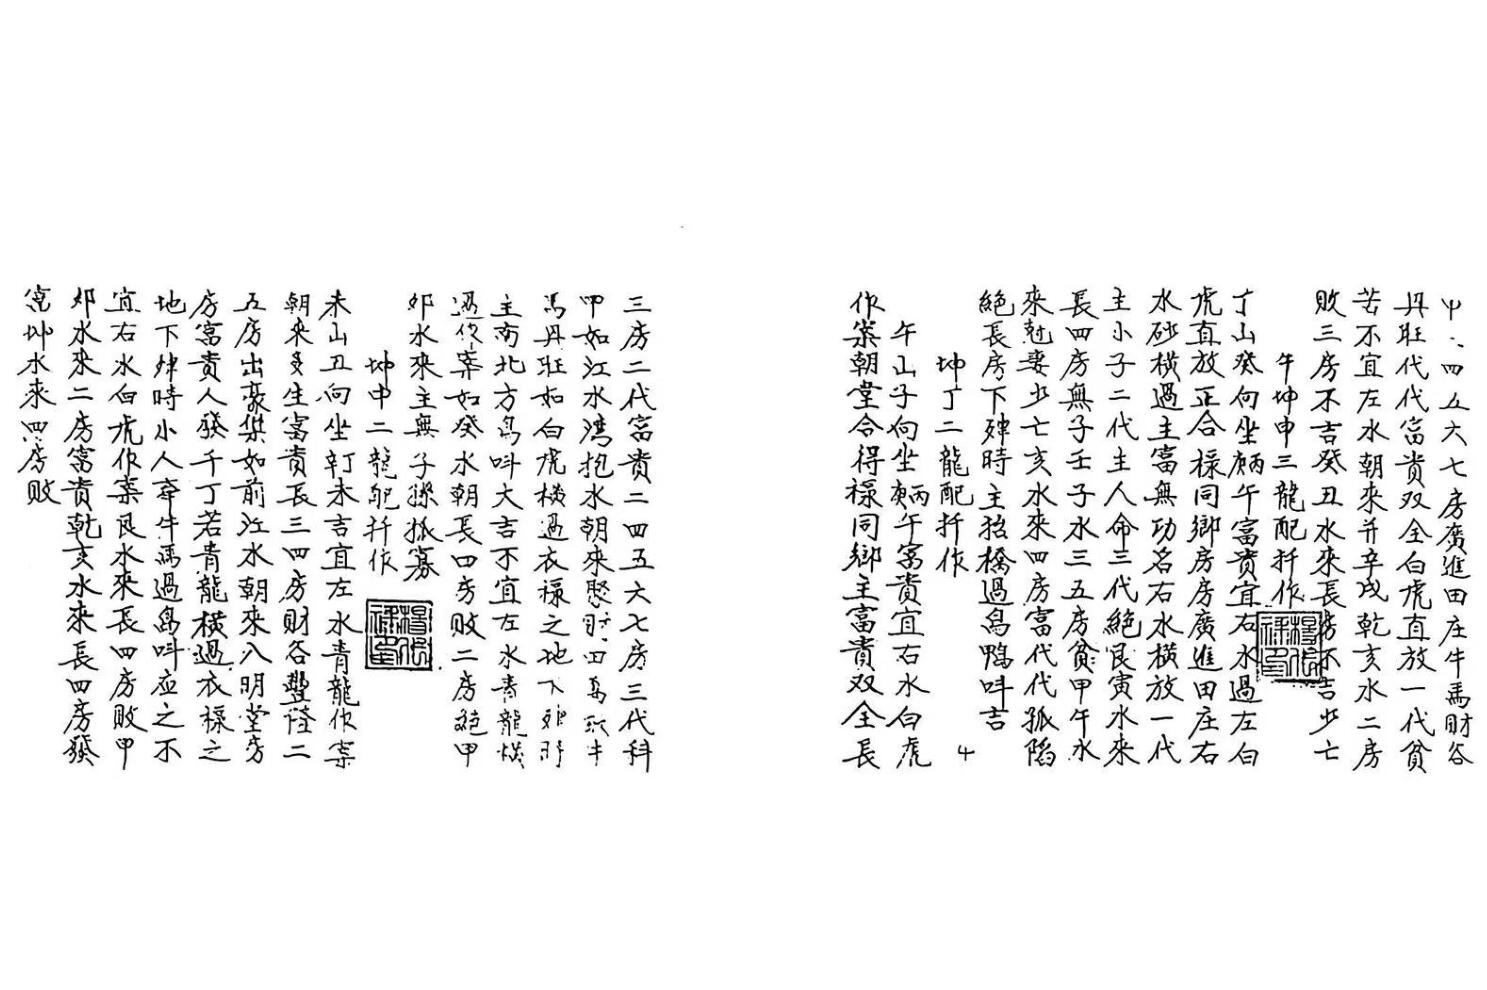 四五六七房廣進田庄牛馬財谷
丹旺代代富贵双全白虎直放一代贫
苦不宜左水朝來并辛戌乾亥水二房
敗三房不吉癸丑水來長房不吉少亡
午坤申三龍配扦作
丁山癸向坐庙午富贵宜右水過左白
虎直放正合樣同鄉房房廣進田庄右
水砂橫過主富無功名右水橫放一代
主小子二代主人命三代絕艮寅水來
長四房無子壬子水三五房贫甲午水
來尅妻少亡亥水來四房富代代孤陷
絕長房下肂時主抬橋過鳥鴨呌吉
坤丁二龍配扦作
午山子向坐 午富贵宜右水白虎
作案朝堂合得祿同鄉主富貴双全長
三房二代富貴二四五六七房三代科
甲如江水灣抱水朝來聚 田 牛
馬丹旺如白虎橫過衣祿之地下肂時
主南北方鳥呌大吉不宜左水青龍橫
過作案如癸水朝長四房敗二房絕甲
卯水來主無子孫孤寡
坤申二龍配扦作
未山丑向坐 未吉宜左水青龍作案
朝來多生富貴長三四房財谷豐陸二
五房出豪傑如前江水朝來入明堂房
房富貴人發千丁若青龍橫過衣祿之
地下肂時小人牽牛馬過鳥呌应之不
宜右水白虎作案艮水來長四房敗甲
卯水來二房富貴乾亥水來長四房發
富坤水來四房敗